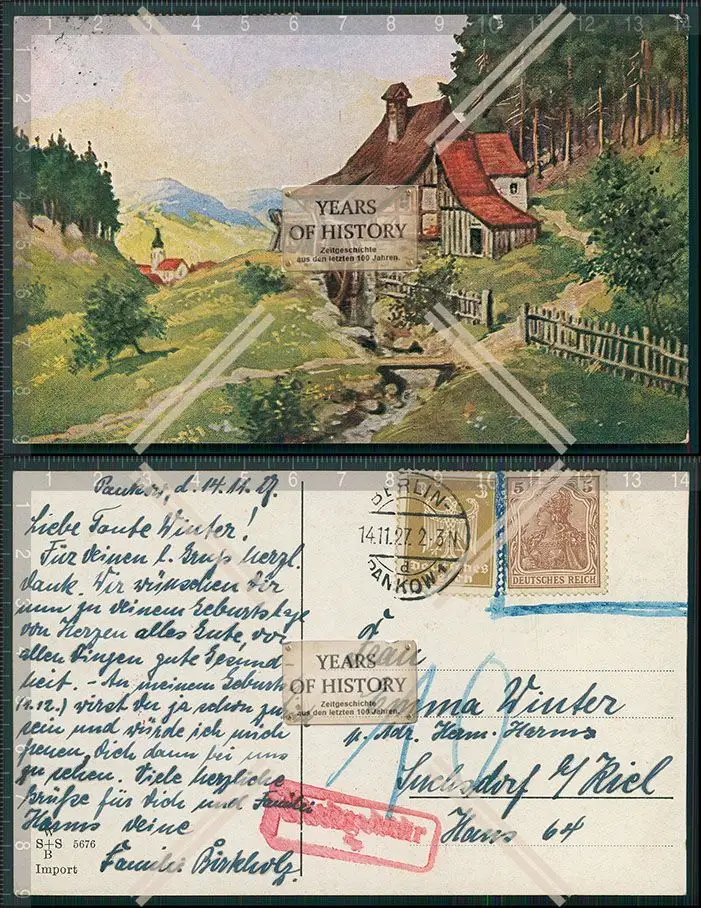 YEARS
OF HISTORY
Zeitgeschichte
aus den letzten 100 Jahren.
Pankow, d. 14.11.27.
Liebe Tante Winter!
Für Deinen l. Gruß herzl.
Dank. Wir wünschen Dir
nun zu Deinem Geburtstage
von Herzen alles Gute, vor
allen Dingen gute Gesund
heit. - An meinem Geburts
12.) wirst Du ja schon
sein und würde ich mich
freuen, Dich dann bei uns
zu sehen. Viele herzliche
Grüße für Dich und Familie
Harms Deine
Familie Birkholz.
W
S+S 5676
B
Import
BERLIN-
14.11.27. 2-3N
d
PANKOW 1
5 5
DEUTSCHES REICH
YEARS
OF HISTORY
Zeitgeschichte
aus den letzten 100 Jahren.
Frau
Emma Winter
p. Adr. Herm. Harms
Suchsdorf b/Kiel
Haus 64
10